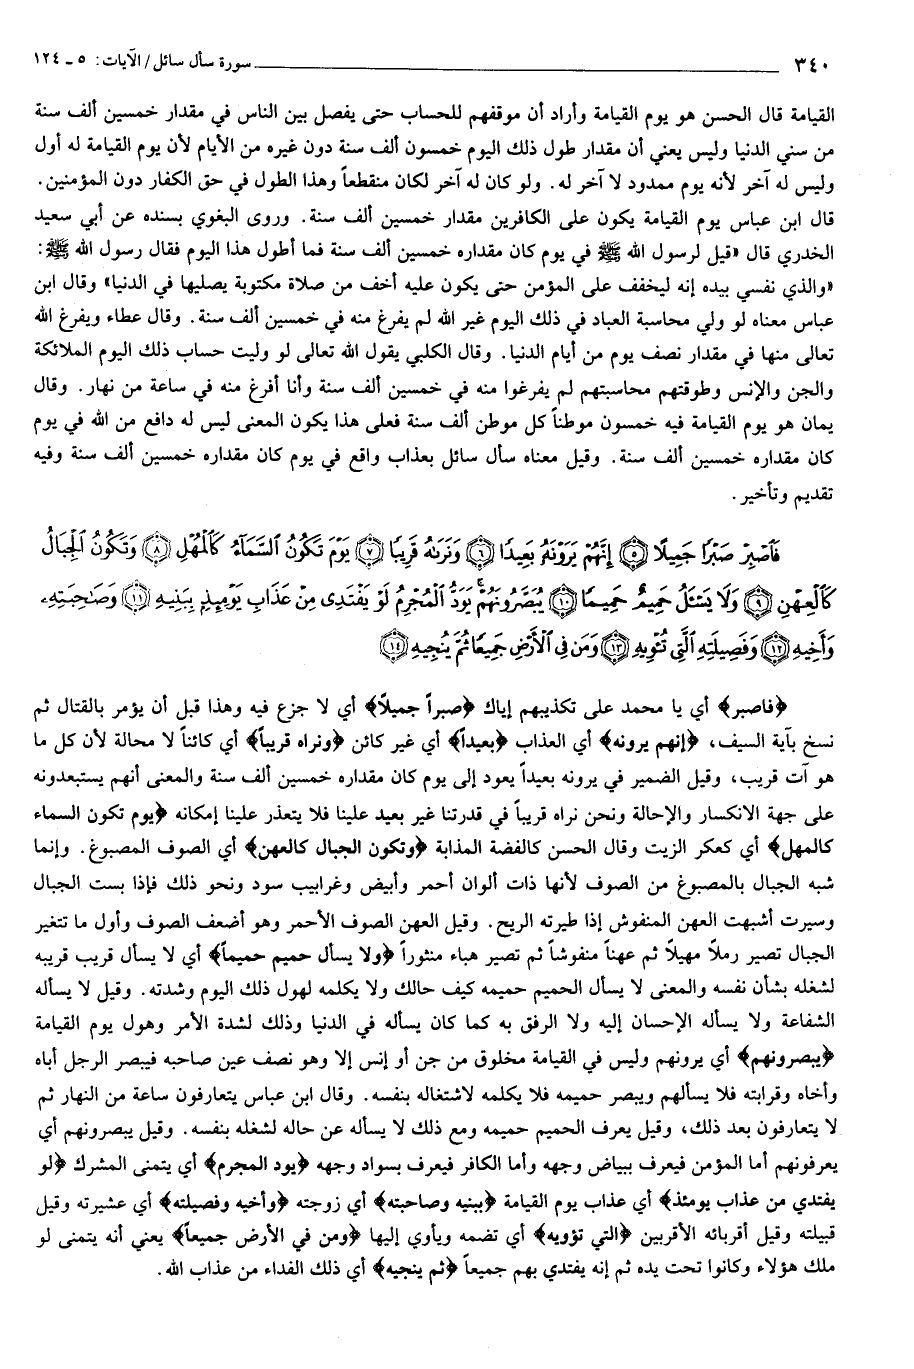 ٣٤٠ سورة سأل سائل/ الآيات: ٥ ـ ١٢٤
القيامة قال الحسن هو يوم القيامة وأراد أن موقفهم للحساب حتى يفصل بين الناس في مقدار خمسين ألف سنة
من سني الدنيا وليس يعني أن مقدار طول ذلك اليوم خمسون ألف سنة دون غيره من الأيام لأن يوم القيامة له أول
وليس له آخر لأنه يوم ممدود لا آخر له. ولو كان له آخر لكان منقطعاً وهذا الطول في حق الكفار دون المؤمنين.
قال ابن عباس يوم القيامة يكون على الكافرين مقدار خمسين ألف سنة. وروى البغوي بسنده عن أبي سعيد
الخدري قال «قيل لرسول الله ﷺ في يوم كان مقداره خمسين ألف سنة فما أطول هذا اليوم فقال رسول الله ﷺ:
«والذي نفسي بيده إنه ليخفف على المؤمن حتى يكون عليه أخف من صلاة مكتوبة يصليها في الدنيا» وقال ابن
عباس معناه لو ولي محاسبة العباد في ذلك اليوم غير الله لم يفرغ منه في خمسين ألف سنة. وقال عطاء ويفرغ الله
تعالى منها في مقدار نصف يوم من أيام الدنيا. وقال الكلبي يقول الله تعالى لو وليت حساب ذلك اليوم الملائكة
والجن والإنس وطوقتهم محاسبتهم لم يفرغوا منه في خمسين ألف سنة وأنا أفرغ منه في ساعة من نهار. وقال
يمان هو يوم القيامة فيه خمسون موطناً كل موطن ألف سنة فعلى هذا يكون المعنى ليس له دافع من الله في يوم
كان مقداره خمسين ألف سنة. وقيل معناه سأل سائل بعذاب واقع في يوم كان مقداره خمسين ألف سنة وفيه
تقديم وتأخير.
فَاصْبِرْ صَبْرًا جَمِيلًا ﴿٥﴾ إِنَّهُمْ يَرَوْنَهُ بَعِيدًا ﴿٦﴾ وَنَرَاهُ قَرِيبًا ﴿٧﴾ يَوْمَ تَكُونُ السَّمَاءُ كَالْمُهْلِ ﴿٨﴾ وَتَكُونُ الْجِبَالُ
كَالْعِهْنِ ﴿٩﴾ وَلَا يَسْئَلُ حَمِيمٌ حَمِيمًا ﴿١٠﴾ يُبَصَّرُونَهُمْ يَوَدُّ الْمُجْرِمُ لَوْ يَفْتَدِى مِنْ عَذَابِ يَوْمِئِذٍ بِبَنِيهِ ﴿١١﴾ وَصَاحِبَتِهِ
وَأَخِيهِ ﴿١٢﴾ وَفَصِيلَتِهِ الَّتِي تُئْوِيهِ ﴿١٣﴾ وَمَن فِي الْأَرْضِ جَمِيعًا ثُمَّ يُنجِيهِ ﴿١٤﴾
﴿فاصبر﴾ أي يا محمد على تكذيبهم إياك ﴿صبراً جميلاً﴾ أي لا جزع فيه وهذا قبل أن يؤمر بالقتال ثم
نسخ بآية السيف، ﴿إنهم يرونه﴾ أي العذاب ﴿بعيداً﴾ أي غير كائن ﴿ونراه قريباً﴾ أي كائناً لا محالة لأن كل ما
هو آت قريب، وقيل الضمير في يرونه بعيداً يعود إلى يوم كان مقداره خمسين ألف سنة والمعنى أنهم يستبعدونه
على جهة الانكسار والإحالة ونحن نراه قريباً في قدرتنا غير بعيد علينا فلا يتعذر علينا إمكانه ﴿يوم تكون السماء
كالمهل﴾ أي كعكر الزيت وقال الحسن كالفضة المذابة ﴿وتكون الجبال كالعهن﴾ أي الصوف المصبوغ. وإنما
شبه الجبال بالمصبوغ من الصوف لأنها ذات ألوان أحمر وأبيض وغرابيب سود ونحو ذلك فإذا بست الجبال
وسيرت أشبهت العهن المنفوش إذا طيرته الريح. وقيل العهن الصوف الأحمر وهو أضعف الصوف وأول ما تتغير
الجبال تصير رملاً مهيلاً ثم عهناً منفوشاً ثم تصير هباء منثوراً ﴿ولا يسأل حميم حميماً﴾ أي لا يسأل قريب قريبه
لشغله بشأن نفسه والمعنى لا يسأل الحميم حميمه كيف حالك ولا يكلمه لهول ذلك اليوم وشدته. وقيل لا يسأله
الشفاعة ولا يسأله الإحسان إليه ولا الرفق به كما كان يسأله في الدنيا وذلك لشدة الأمر وهول يوم القيامة
﴿يبصرونهم﴾ أي يرونهم وليس في القيامة مخلوق من جن أو إنس إلا وهو نصف عين صاحبه فيبصر الرجل أباه
وأخاه وقرابته فلا يسألهم ويبصر حميمه فلا يكلمه لاشتغاله بنفسه. وقال ابن عباس يتعارفون ساعة من النهار ثم
لا يتعارفون بعد ذلك، وقيل يعرف الحميم حميمه ومع ذلك لا يسأله عن حاله لشغله بنفسه. وقيل يبصرونهم أي
يعرفونهم أما المؤمن فيعرف ببياض وجهه وأما الكافر فيعرف بسواد وجهه ﴿يود المجرم﴾ أي يتمنى المشرك ﴿لو
يفتدي من عذاب يومئذ﴾ أي عذاب يوم القيامة ﴿ببنيه وصاحبته﴾ أي زوجته ﴿وأخيه وفصيلته﴾ أي عشيرته وقيل
قبيلته وقيل أقربائه الأقربين ﴿التي تؤويه﴾ أي تضمه ويأوي إليها ﴿ومن في الأرض جميعاً﴾ يعني أنه يتمنى لو
ملك هؤلاء وكانوا تحت يده ثم إنه يفتدي بهم جميعاً ﴿ثم ينجيه﴾ أي ذلك الفداء من عذاب الله.